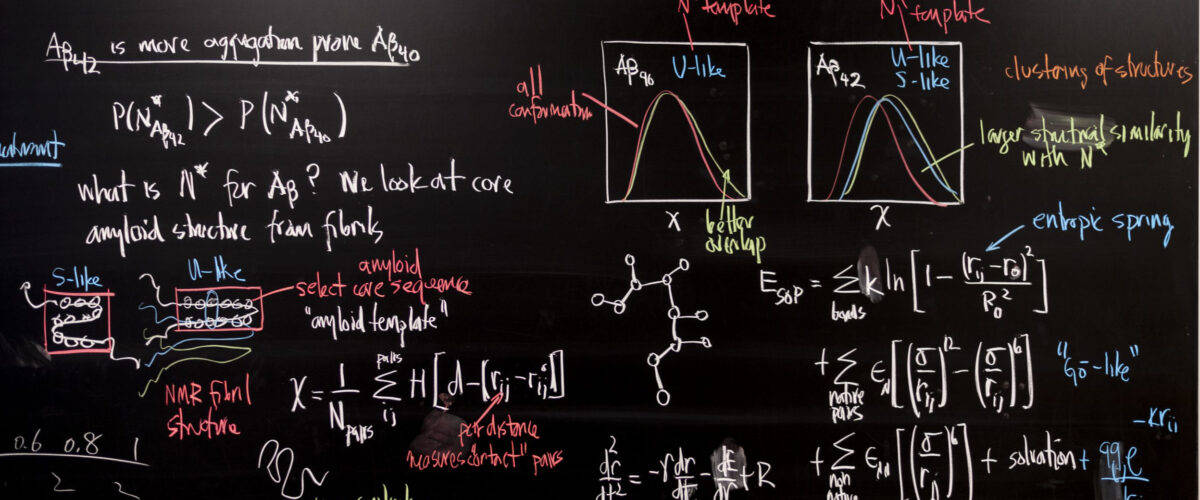 Aβ42 is more aggregation prone Aβ40
P(N*Aβ42) > P(N*Aβ40)
what is N* for Aβ? We look at core
amyloid structure from fibrils
S-like
U-like
amyloid
select core sequence
"amyloid template"
NMR fibril
structure
χ = 1/Npairs Σ pairs ij H[d-(rij-rij)]
pair distance
measures "contact" pairs
0.6 0.8 1
2 2
N* template
Aβ40
U-like
all
conformation
x
better
overlap
N* template
Aβ42
U-like
S-like
χ
clustering of structures
larger structural similarity
with N*
entropic spring
ESOP = Σ bonds k ln[1 - (rij-ro)²/Ro²]
+ Σ native pairs ЄN[(σ/rij)12 - (σ/rij)6]
"Gō-like"
+ Σ non native ЄNN[(σ/rij)6] + solvation +
-κrij
d²r/dt² = -γ dr/dt - dE/dr + R